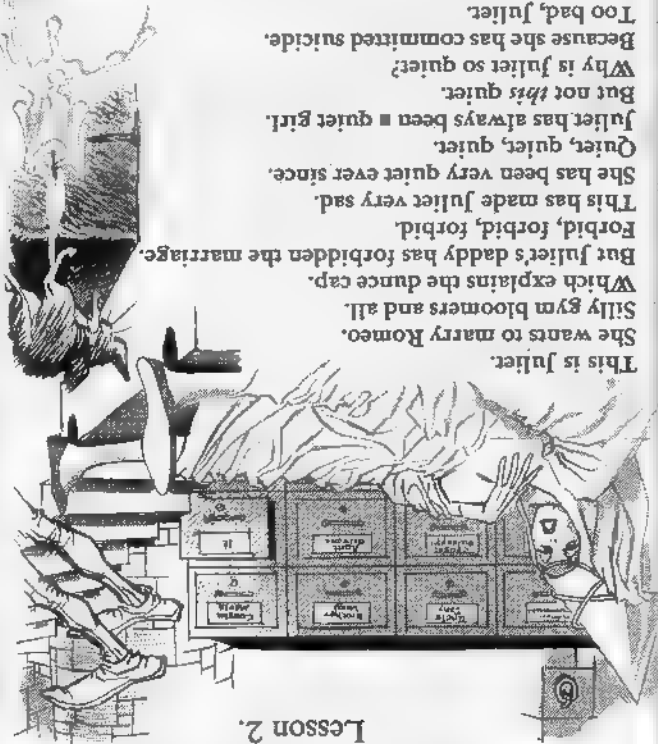 Lesson 2.
This is Juliet.
She wants to marry Romeo.
Silly gym bloomers and all.
Which explains the dunce cap.
But Juliet's daddy has forbidden the marriage.
Forbid, forbid, forbid.
This has made Juliet very sad.
She has been very quiet ever since.
Quiet, quiet, quiet.
Juliet has always been a quiet girl.
But not this quiet.
Why is Juliet so quiet?
Because she has committed suicide.
Too bad, Juliet.